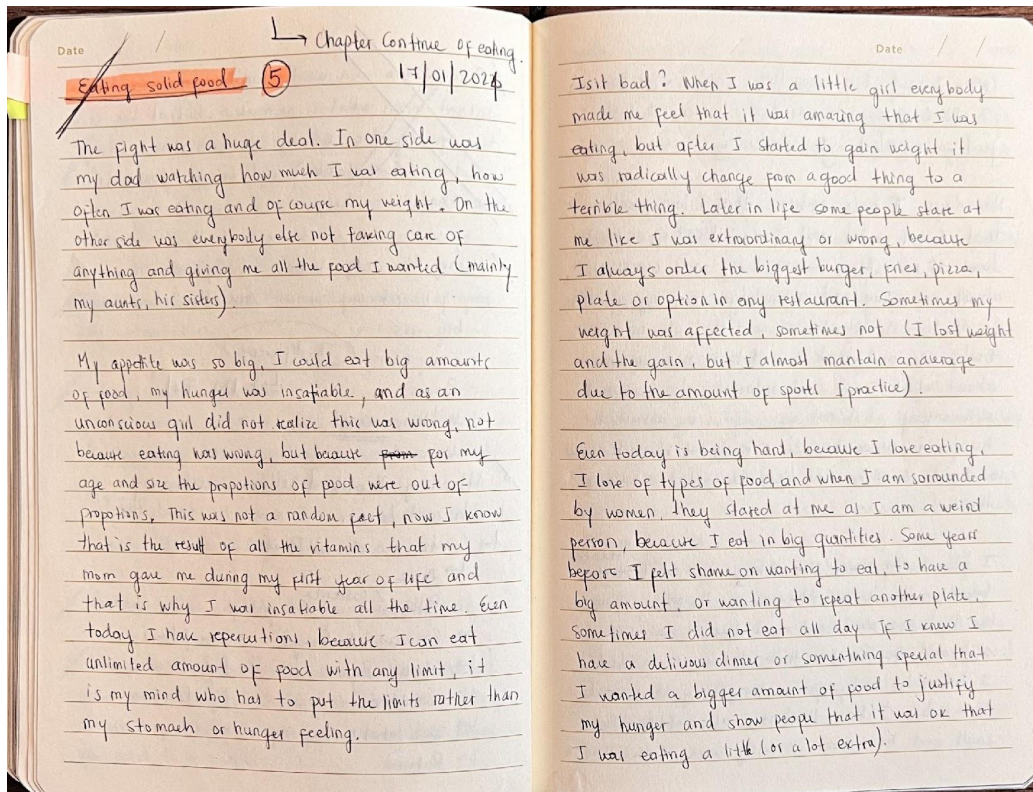 Chapter Continue of eating.
Date / /
Eating solid food 5 17/01/2024
The fight was a huge deal. In one side was
my dad watching how much I was eating, how
often I was eating and of course my weight. On the
other side was everybody else not taking care of
anything and giving me all the food I wanted (mainly
my aunts, his sisters).
My appetite was so big, I could eat big amounts
of food, my hunger was insatiable, and as an
unconscious girl did not realize this was wrong, not
because eating was wrong, but because from for my
age and size the propotions of food were out of
propotions. This was not a random fact, now I know
that is the result of all the vitamins that my
mom gave me during my first year of life and
that is why I was insatiable all the time. Even
today I have repercutions, because I can eat
unlimited amount of food with any limit, it
is my mind who has to put the limits rather than
my stomach or hunger feeling.
Date / /
Isit bad? When I was a little girl everybody
made me feel that it was amazing that I was
eating, but after I started to gain weight it
was radically change from a good thing to a
terrible thing. Later in life some people stare at
me like I was extraordinary or wrong, because
I always order the biggest burger, fries, pizza,
plate or option in any restaurant. Sometimes my
weight was affected, sometimes not (I lost weight
and the gain, but I almost mantain an average
due to the amount of sports I practice)
Even today is being hard, because I love eating,
I love of types of food, and when I am sorrounded
by women, they stared at me as I am a weird
person, because I eat in big quantities. Some years
before I felt shame on wanting to eat, to have a
big amount, or wanting to repeat another plate.
Sometimes I did not eat all day If I knew I
have a delivous dinner or somenthing special that
I wanted a bigger amount of food to justify
my hunger and show peope that it was ok that
I was eating a little (or a lot extra).